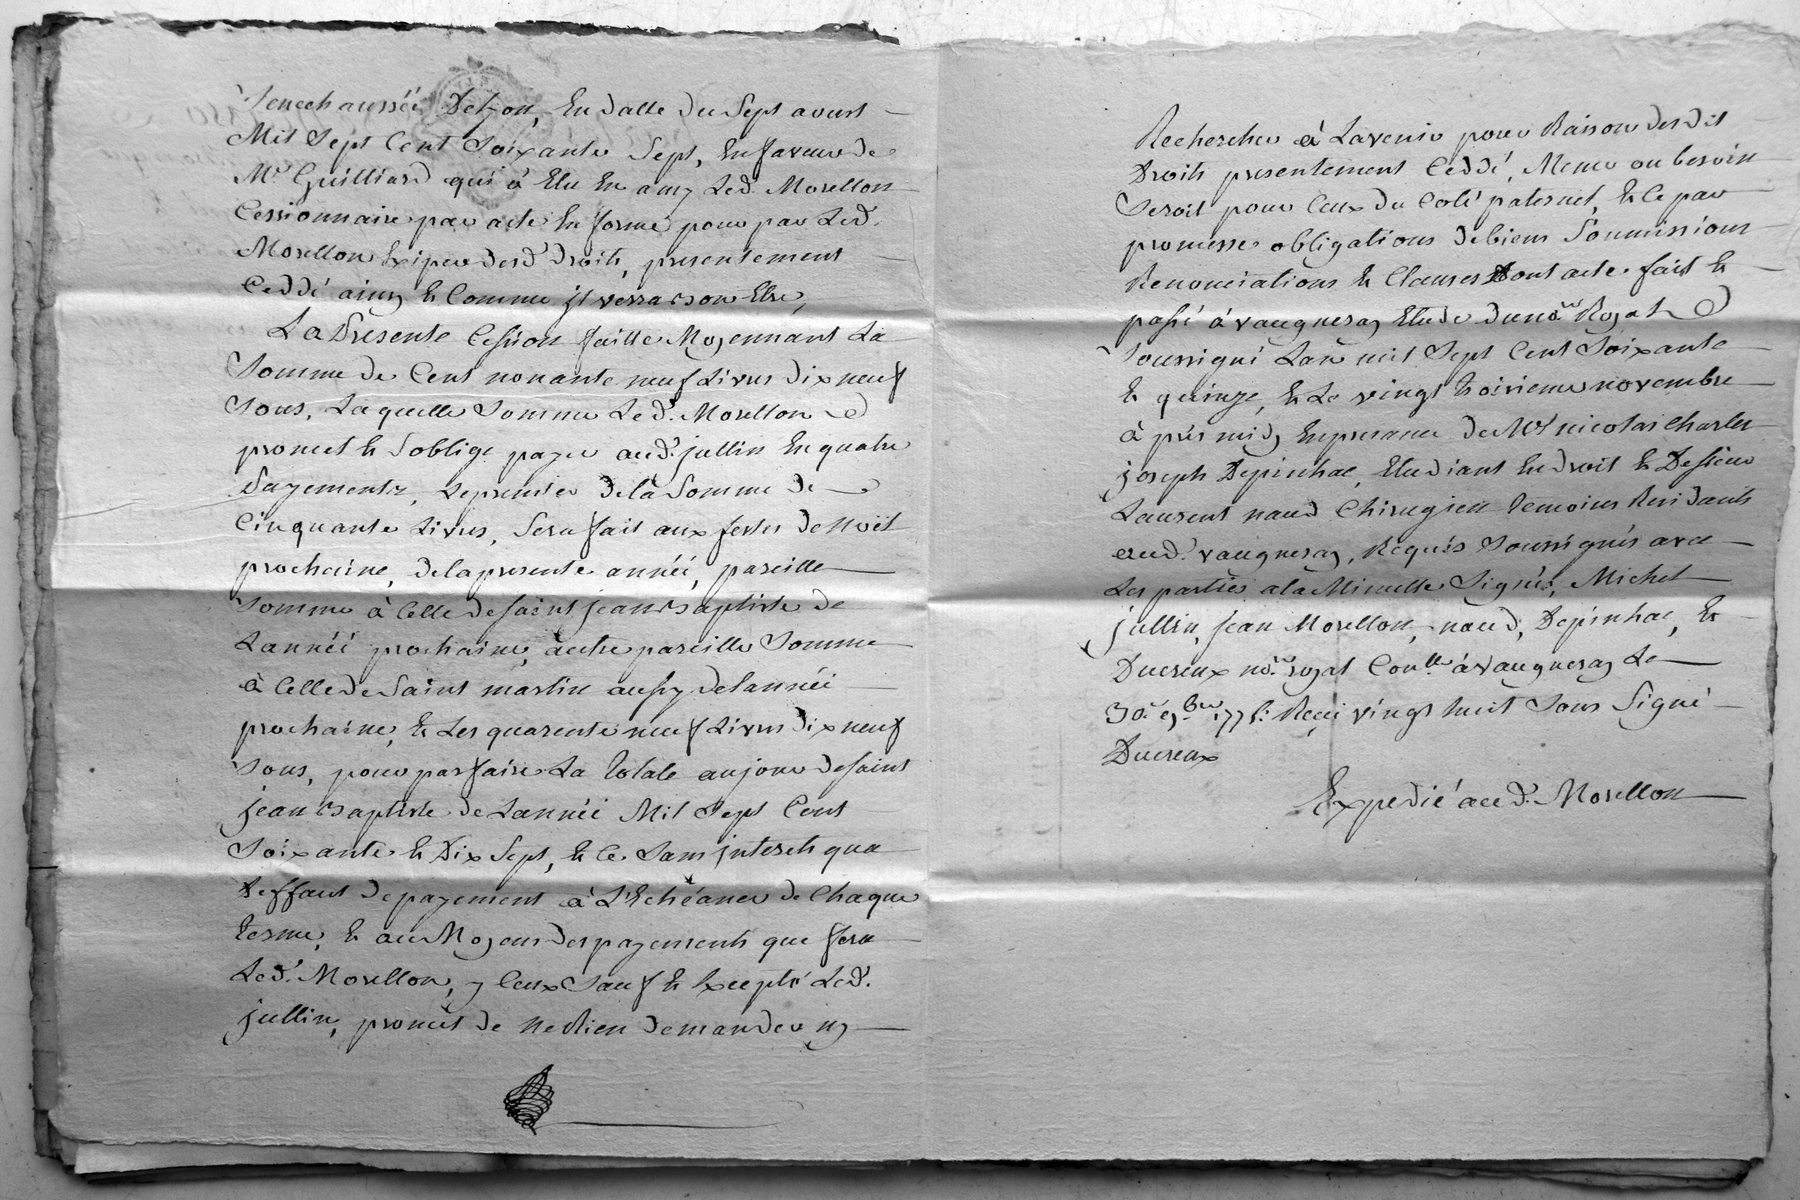 Senechaussée De Lyon, En datte du Sept aoust
Mil Sept Cent Soixante Sept, En faveur de
Mr. Guilliard qui à Elu En amy Led. Morellon
Cessionnaire par acte En forme pour par Led.
Morellon Exiper desd. droits, presentement
Ceddé ainsy & Comme jl verra bon Etre,
La Presente Cession faitte Moyennant La
Somme de Cent nonante neuf Livres dix neuf
Sous, Laquelle Somme Led. Morellon
promet & Soblige payer aud. jullin En quatre
Payements, Le premier de la Somme de
Cinquante Livres, Sera fait aux festes de Noël
prochaine, de la presente année, pareille
Somme à Celle de Saint jean Baptiste de
Lannéé prochaine, autre pareille Somme
à Celle de Saint martin aussy de lannéé
prochaine, & Les quarente neuf Livres dix neuf
Sous, pour parfaire La totale au jour de saint
jean Baptiste de Lannéé Mil Sept Cent
Soixante & Dix Sept, & Ce Sans jnterets qua
Deffaut de payement à L'Echéance de Chaque
terme, & au Moyens des payements que fera
Led. Morellon, y Ceux Sauf & Excepté Led.
jullin, promet de ne Rien demander ny
Rechercher à Lavenir pour Raison desdit
Droits presentement Ceddé, Meme ou besoin
Seroit pour Ceux du Coté paternel, & Ce par
promesse obligations de biens Soumissions
Renonciations & Clauses Dont acte fait &
passé à vaugneray Etude du no.re Royal
Soussigné Lan mil Sept Cent Soixante
& quinze, & Le vingt troisieme novembre
à près midy En presence de Mr nicolas Charles
joseph Depinhac, Etudiant En droit & De sieur
Laurent naud Chirugien temoins Residants
aud. vaugneray, Requis Soussignés avec
Les parties a la Minutte Signés, Michel
jullin, jean Morellon, naud, Depinhac, &
Ducreux no.re royal Con.lle à vaugneray Le
30.e 9.bre 1775. Reçu vingt huit Sous Signé
Ducreux
Expedié aud. Morellon